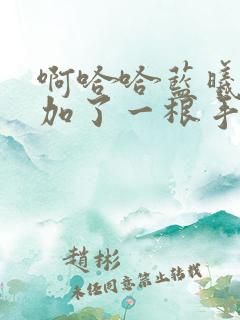 啊哈哈蓝曦
加了一根手
趙彬
未经同意禁止转载